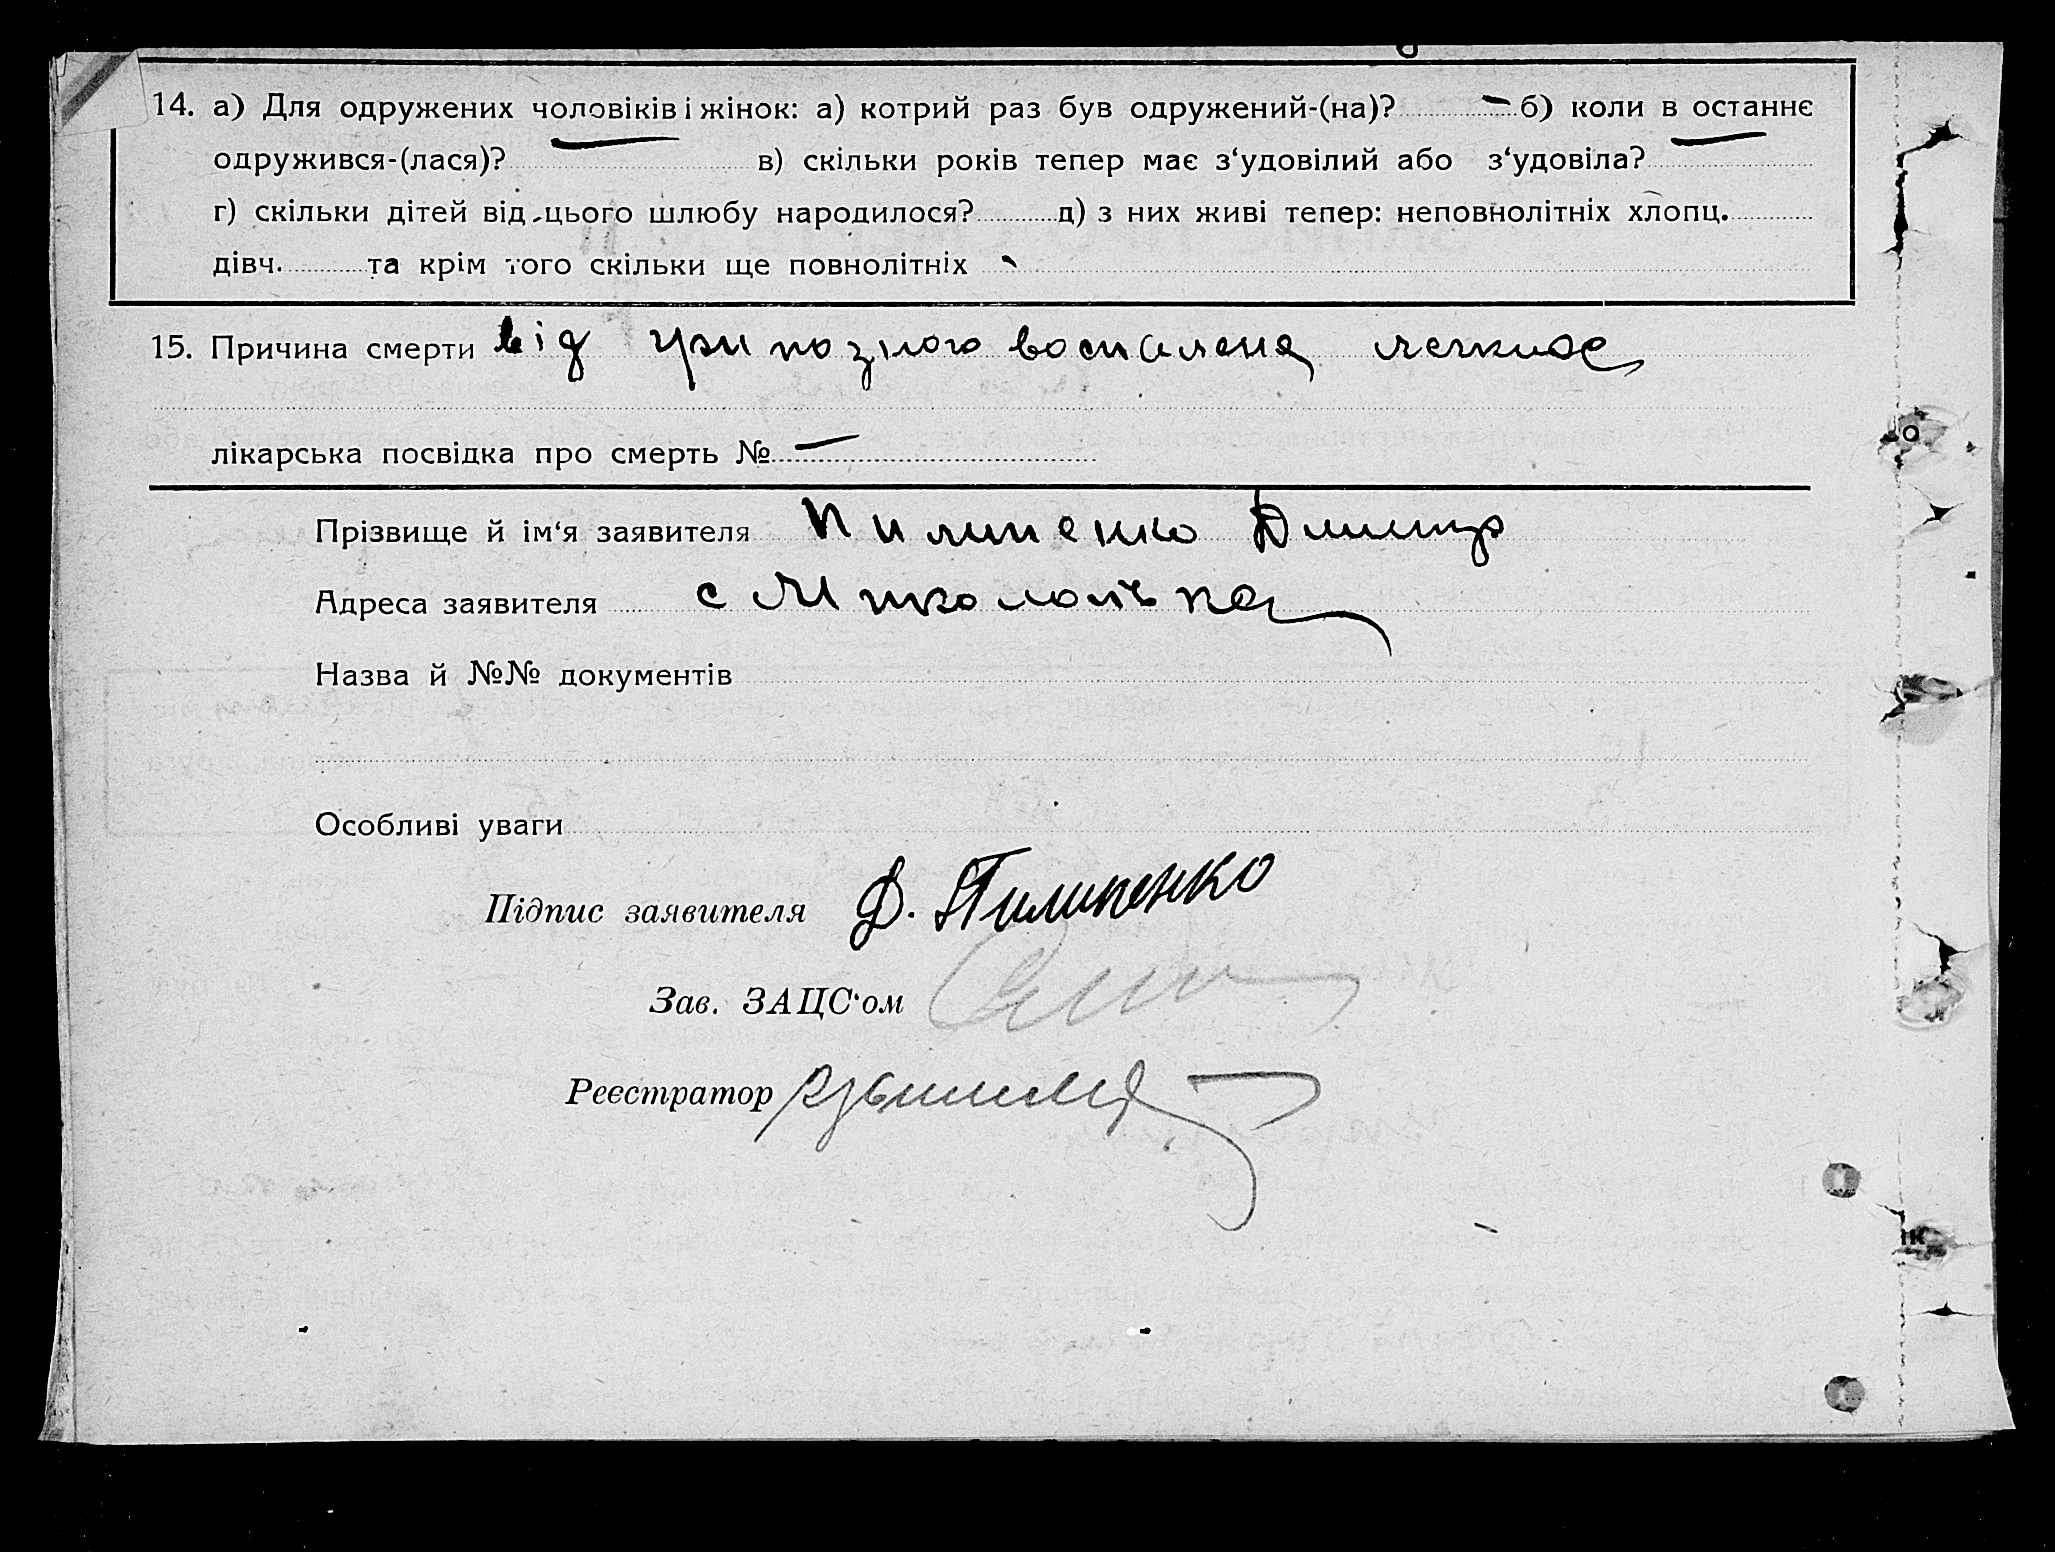 14. а) Для одружених чоловіків і жінок: а) котрий раз був одружений-(на)? – б) коли в останнє
одружився-(лася)? – в) скільки років тепер має з‘удовілий або з‘удовіла? –
г) скільки дітей від цього шлюбу народилося? д) з них живі тепер: неповнолітніх хлопц.
дівч. та крім того скільки ще повнолітніх
15. Причина смерти від грипозного воспаленя легких
лікарська посвідка про смерть № –
Прізвище й ім‘я заявителя Пилипенко Дмитр
Адреса заявителя с Миколаївка
Назва й №№ документів
Особливі уваги
Підпис заявителя Д. Пилипенко
Зав. ЗАЦС‘ом
Реєстратор